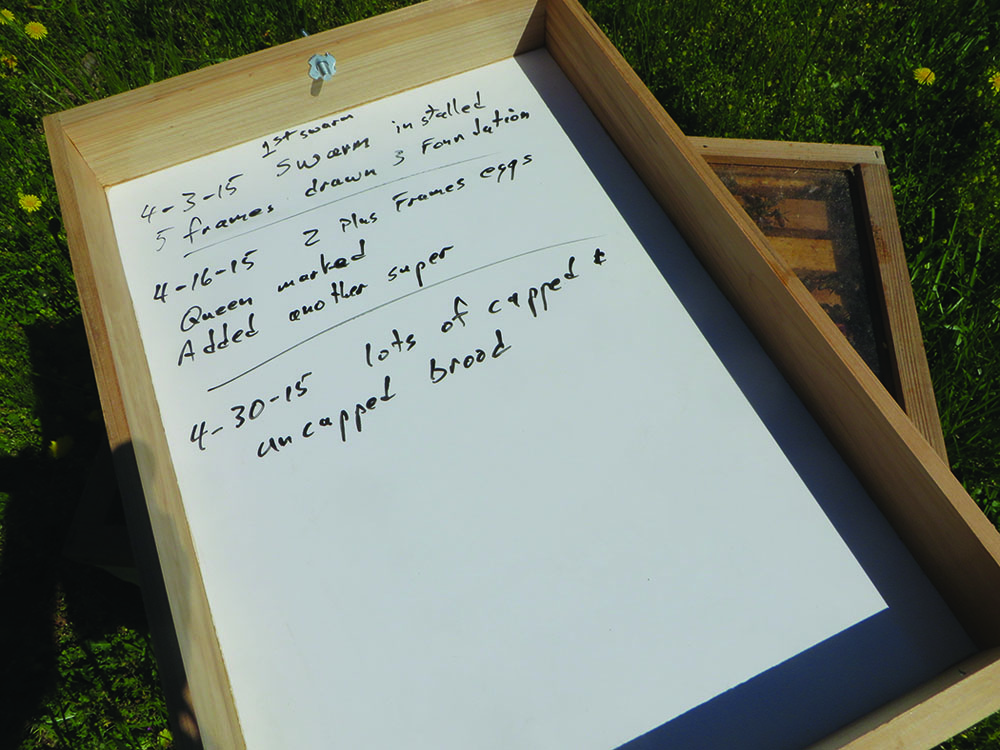 1st swarm
4-3-15 Swarm installed
5 frames drawn 3 Foundation
4-16-15 2 plus Frames eggs
Queen marked
Added another super
4-30-15 lots of capped &
uncapped brood